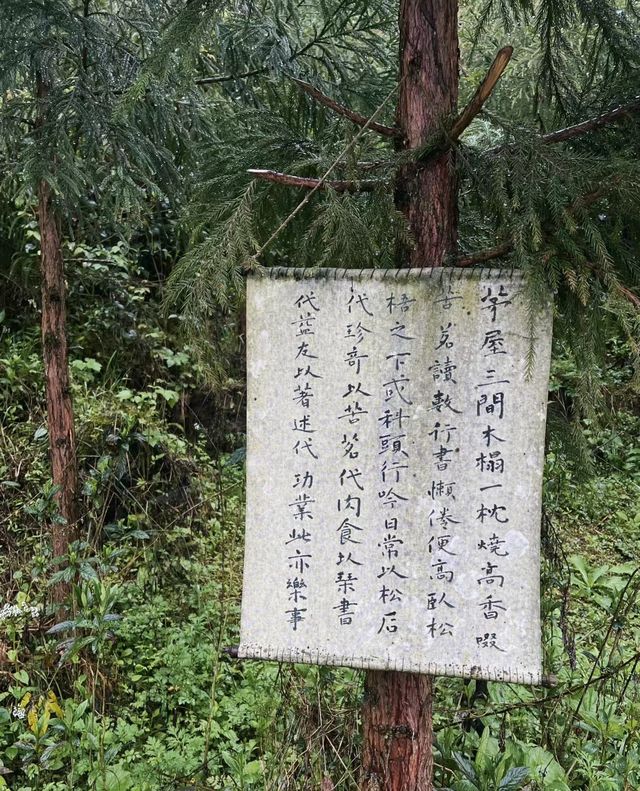 茅屋三間木榻一枕燒高香啜
苦茗讀數行書懶倦便高臥松
梧之下或科頭行吟日常以松石
代珍奇以苦茗代肉食以琴書
代益友以著述代功業此亦樂事